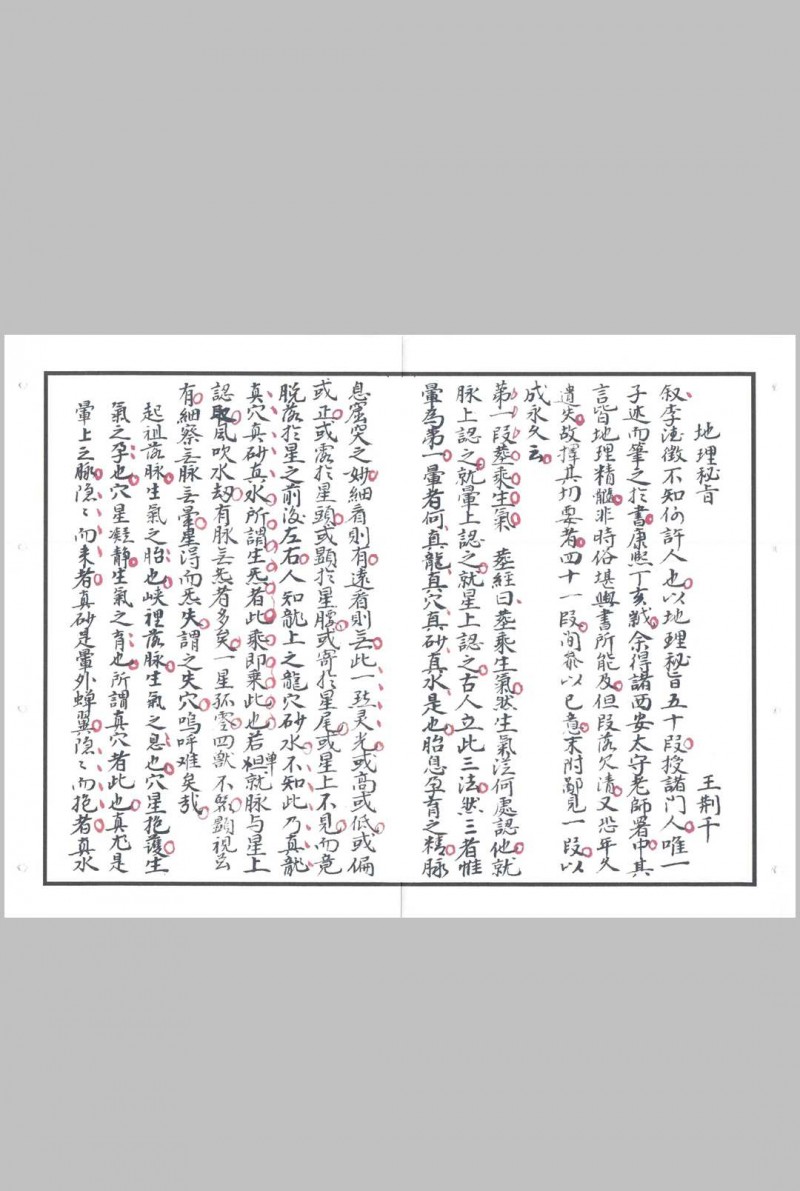 地理秘旨
王荆千
叙李德徵不知何許人也以地理秘旨五十段授諸門人唯一
子述而筆之於書康熙丁亥余得諸西安太守老師署中其
言皆地理精髓非時俗堪輿書所能及但段落欠清又恐年久
遺失故擇其切要者四十一段間參以己意末附鄙見一段以
成永久云
第一段葬乘生氣 葬經曰葬乘生氣然生氣從何處認他就
脉上認之就暈上認之就星上認之古人立此三法然三者惟
暈為第一暈者何真龍真穴真砂真水是也胎息孕育之精脉
息窟突之妙細看則有遠看則無此一點灵光或高或低或偏
或正或露於星頭或顯於星腰或寄於星尾或星上不見而竟
脱落於星之前後左右人知龍上之龍穴砂水不知此乃真龍
真穴真砂真水所謂生炁者此乘即乘此也若但單就脉与星上
認取風吹水刼有脉無炁者多矣一星孤零四獸不然顕視云
有細察無脉無暈星得而炁失謂之失穴嗚呼难矣哉
起祖落脉生氣之胎也峽裡落脉生氣之息也穴星抱護生
氣之孕也穴星凝静生氣之育也所謂真穴者此也真尤是
暈上之脉隐隐而来者真砂是暈外蟬翼隐隐而抱者真水